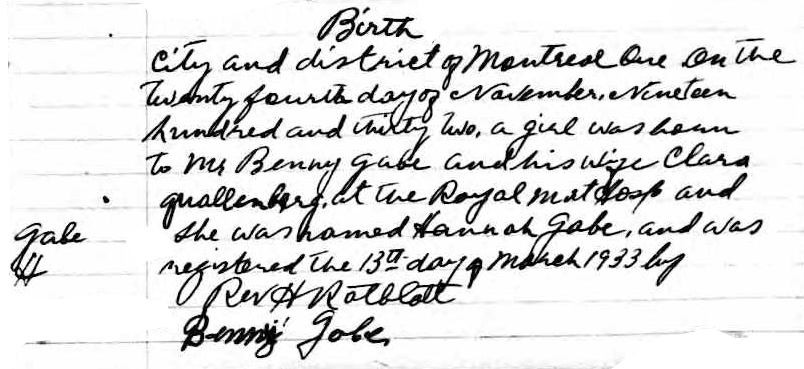 Birth
City and district of Montreal Que On the
twenty fourth day of November, Nineteen
hundred and thirty two, a girl was born
to Mr Benny Gabe and his wife Clara
Quallenberg, at the Royal Mat Hosp and
Gabe she was named Hannah Gabe, and was
H registered the 13th day of March 1933 by
Rev H Rotblatt
Benny Gabe